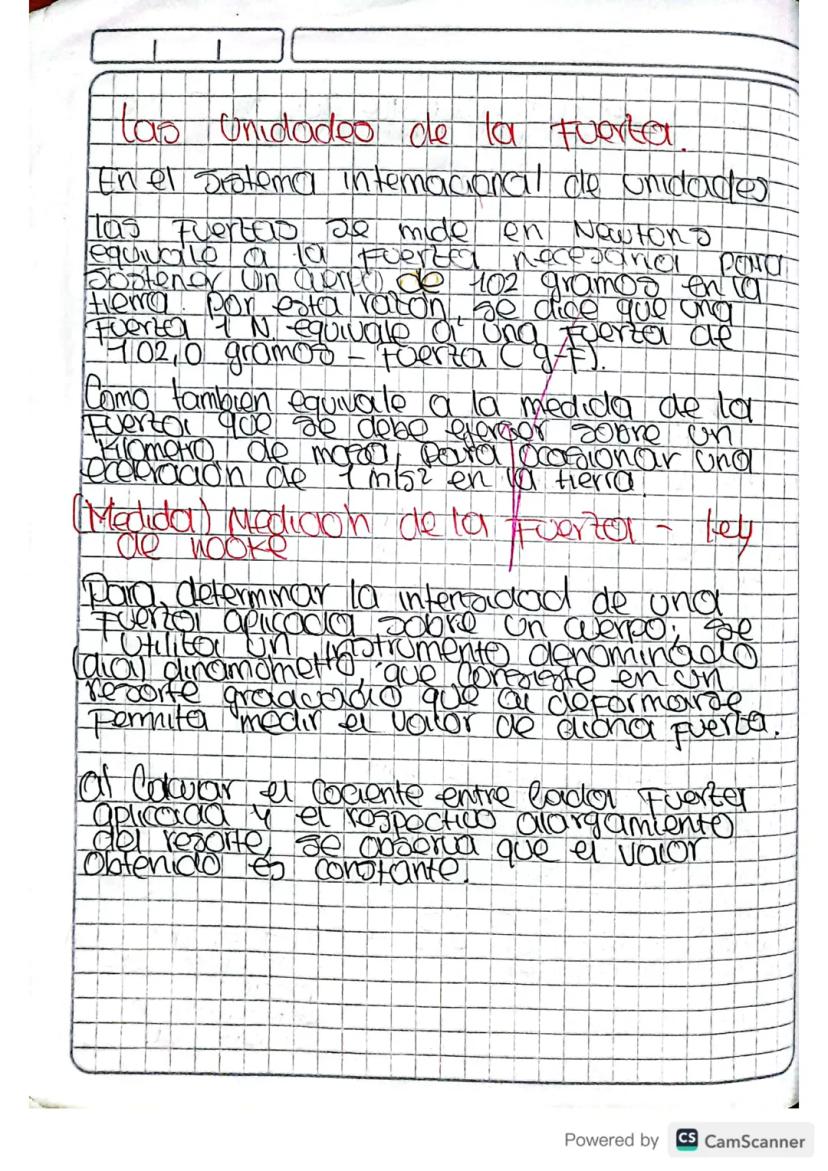 Las Unidades de la Fuerza.
En el sistema internacional de unidades
las fuerzas se mide en Newtons
equivale a la fuerza necesaria para
sostener un cuerpo de 102 gramos en la
tierra. Por esta razón, se dice que una
fuerza 1 N. equivale a una fuerza de
102,0 gramos - fuerza (g-f).
Como tambien equivale a la medida de la
fuerza que se debe ejercer sobre un
kilometro de masa, para ocasionar una
aceleración de 1 m/s2 en la tierra.
(Medida) Medicion de la Fuerza - Ley
de Hooke
Para determinar la intensidad de una
fuerza aplicada sobre un cuerpo; se
utiliza un instrumento denominado
(dia) dinamometro, que consiste en un
resorte graduado que al deformarse
permita medir el valor de dicha fuerza.
al calcular el cociente entre cada fuerza
aplicada y el respectivo alargamiento
del resorte, se observa que el valor
obtenido es constante.
Powered by CS CamScanner